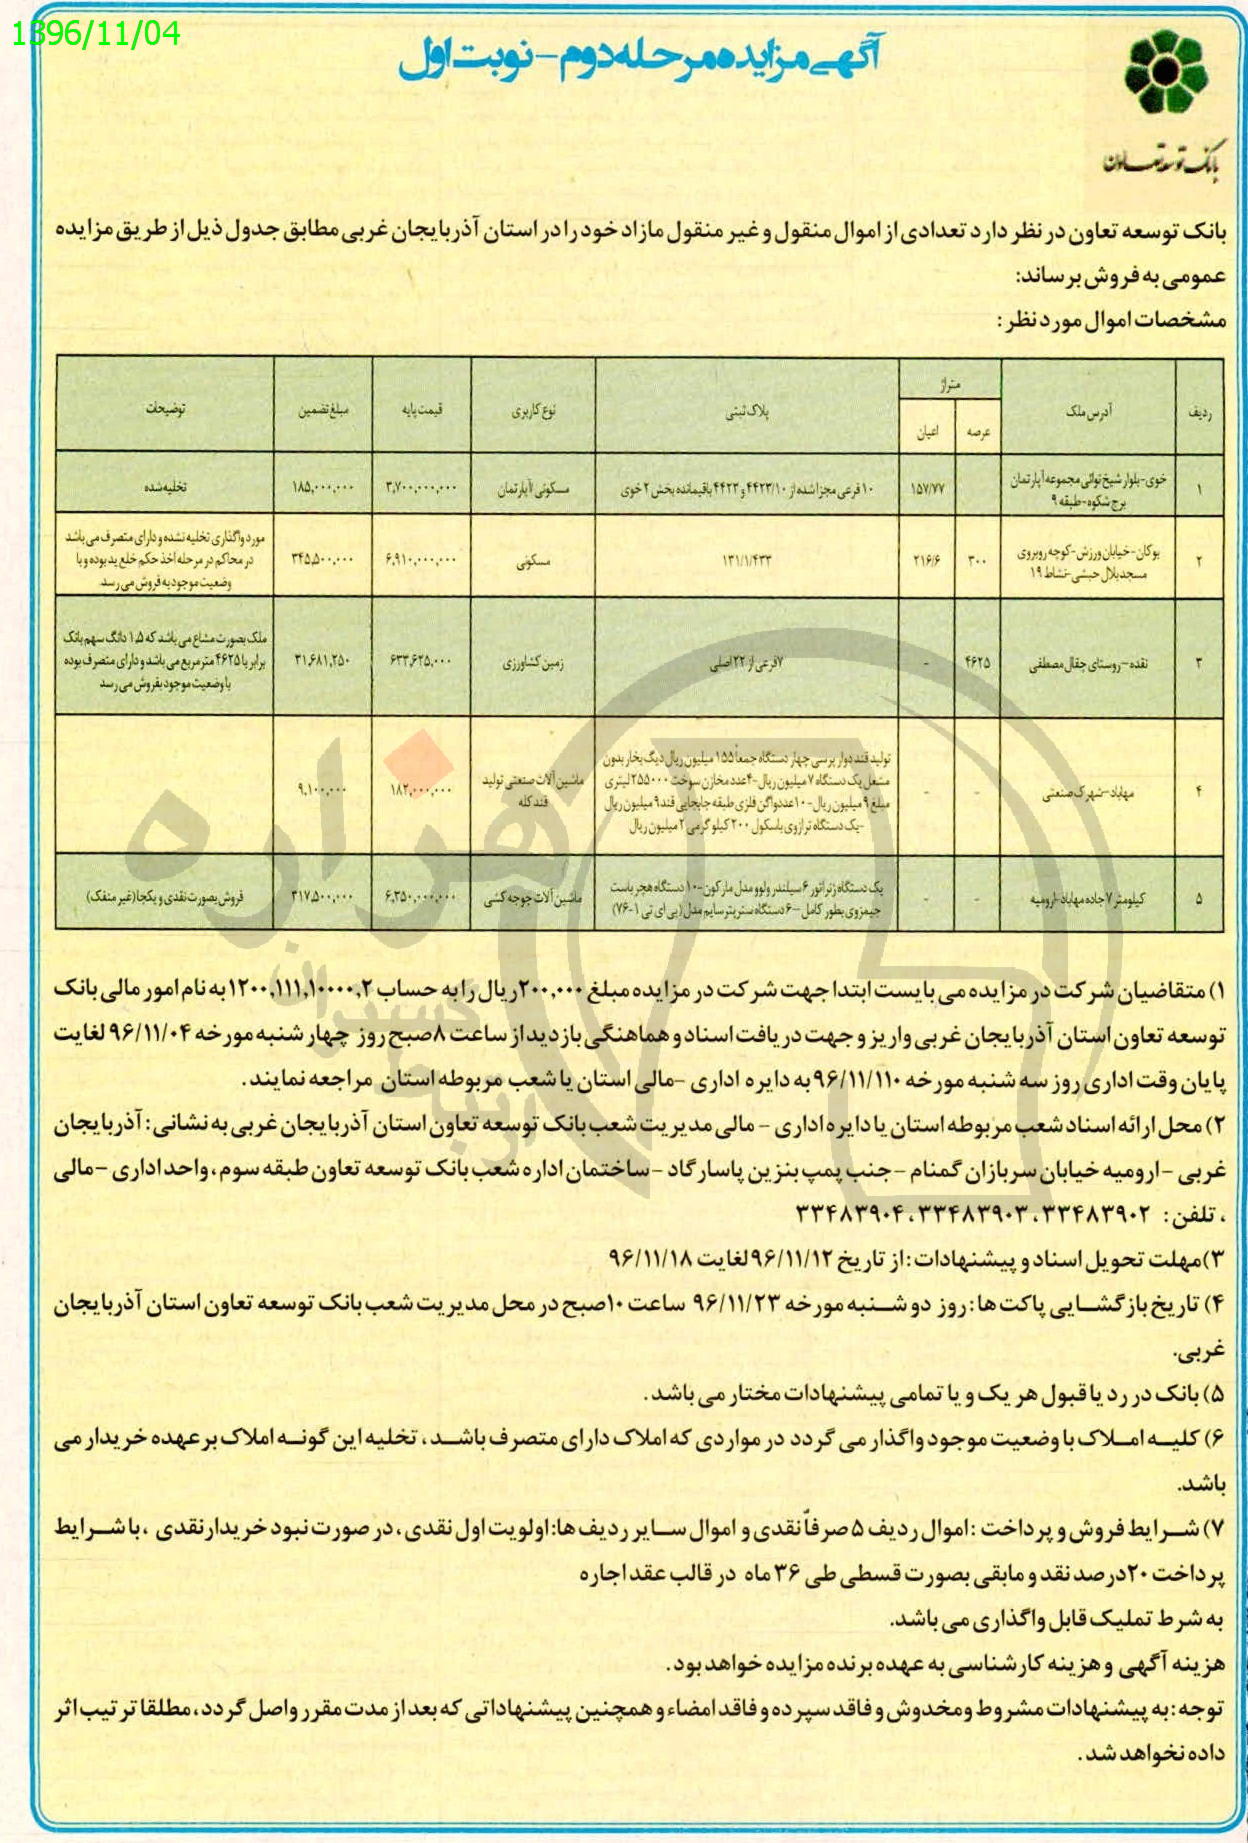 1396/11/04
آگهی مزایده مرحله دوم - نوبت اول
بانک توسعه تعاون
بانک توسعه تعاون در نظر دارد تعدادی از اموال منقول و غیر منقول مازاد خود را در استان آذربایجان غربی مطابق جدول ذیل از طریق مزایده
عمومی به فروش برساند:
مشخصات اموال مورد نظر:
ردیف | آدرس ملک | متراژ | پلاک ثبتی | نوع کاربری | قیمت پایه | مبلغ تضمین | توضیحات
عرصه | اعیان
۱ | خوی-بلوار شیخ نوائی مجموعه آپارتمان | ۱۵۷/۷۷ | ۱۰ فرعی مجزا شده از ۴۴۲۳/۱۰ و ۴۴۲۳ باقیمانده بخش ۲ خوی | مسکونی (آپارتمان | ۳,۷۰۰,۰۰۰,۰۰۰ | ۱۸۵,۰۰۰,۰۰۰ | تخلیه شده
برج شکوه-طبقه ۹
۲ | بوکان-خیابان ورزش-کوچه روبروی | ۳۰۰ | ۲۱۶/۶ | ۱۳۱/۱/۴۳۳ | مسکونی | ۶,۹۱۰,۰۰۰,۰۰۰ | ۳۴۵,۵۰۰,۰۰۰ | مورد واگذاری تخلیه نشده و دارای متصرف می باشد
مسجد بلال حبشی-نشاط ۱۹ | در محاکم در مرحله اخذ حکم خلع ید بوده و با
وضعیت موجود به فروش می رسد.
۳ | نقده-روستای جقال مصطفی | ۴۶۲۵ | - | ۷ فرعی از ۲۲ اصلی | زمین کشاورزی | ۶۳۳,۶۲۵,۰۰۰ | ۳۱,۶۸۱,۲۵۰ | ملک بصورت مشاع می باشد که ۱,۵ دانگ سهم بانک
برابر با ۴۶۲۵ متر مربع می باشد و دارای متصرف بوده
با وضعیت موجود بفروش می رسد
۴ | مهاباد-شهرک صنعتی | - | - | تولید قند دوار پرسی چهار دستگاه جمعاً ۱۵۵ میلیون ریال دیگ بخار بدون | ماشین آلات صنعتی تولید | ۱۸۲,۰۰۰,۰۰۰ | ۹,۱۰۰,۰۰۰
مشعل یک دستگاه ۷ میلیون ریال-۴عدد مخازن سوخت ۲۵۵۰۰۰ لیتری | قند کله
مبلغ ۹ میلیون ریال-۱۰عدد واگن فلزی طبقه جابجایی قند ۹ میلیون ریال
-یک دستگاه ترازوی باسکول ۲۰۰ کیلو گرمی ۲ میلیون ریال
۵ | کیلومتر ۷ جاده مهاباد-ارومیه | - | - | یک دستگاه ژنراتور ۶ سیلندر ولوو مدل مارکون-۱۰ دستگاه هچر باست | ماشین آلات جوجه کشی | ۶,۳۵۰,۰۰۰,۰۰۰ | ۳۱۷,۵۰۰,۰۰۰ | فروش بصورت نقدی و یکجا(غیر منفک)
جیمزوی بطور کامل-۶ دستگاه ستر پترسایم مدل (بی ای تی ۱-۷۶)
۱) متقاضیان شرکت در مزایده می بایست ابتدا جهت شرکت در مزایده مبلغ ۲۰۰,۰۰۰ریال را به حساب ۱۲۰۰,۱۱۱,۱۰۰۰۰,۲ به نام امور مالی بانک
توسعه تعاون استان آذربایجان غربی واریز و جهت دریافت اسناد و هماهنگی بازدید از ساعت ۸صبح روز چهار شنبه مورخه ۹۶/۱۱/۰۴ لغایت
پایان وقت اداری روز سه شنبه مورخه ۹۶/۱۱/۱۱۰ به دایره اداری -مالی استان یا شعب مربوطه استان مراجعه نمایند.
۲) محل ارائه اسناد شعب مربوطه استان یا دایره اداری - مالی مدیریت شعب بانک توسعه تعاون استان آذربایجان غربی به نشانی: آذربایجان
غربی -ارومیه خیابان سربازان گمنام -جنب پمپ بنزین پاسارگاد -ساختمان اداره شعب بانک توسعه تعاون طبقه سوم، واحد اداری -مالی
، تلفن: ۳۳۴۸۳۹۰۲، ۳۳۴۸۳۹۰۳، ۳۳۴۸۳۹۰۴
۳)مهلت تحویل اسناد و پیشنهادات: از تاریخ ۹۶/۱۱/۱۲ لغایت ۹۶/۱۱/۱۸
۴) تاریخ بازگشایی پاکت ها: روز دو شنبه مورخه ۹۶/۱۱/۲۳ ساعت ۱۰صبح در محل مدیریت شعب بانک توسعه تعاون استان آذربایجان
غربی.
۵) بانک در رد یا قبول هر یک و یا تمامی پیشنهادات مختار می باشد.
۶) کلیه املاک با وضعیت موجود واگذار می گردد در مواردی که املاک دارای متصرف باشد، تخلیه این گونه املاک بر عهده خریدار می
باشد.
۷) شرایط فروش و پرداخت: اموال ردیف ۵ صرفاً نقدی و اموال سایر ردیف ها: اولویت اول نقدی، در صورت نبود خریدار نقدی ، با شرایط
پرداخت ۲۰درصد نقد و مابقی بصورت قسطی طی ۳۶ ماه در قالب عقد اجاره
به شرط تملیک قابل واگذاری می باشد.
هزینه آگهی و هزینه کارشناسی به عهده برنده مزایده خواهد بود.
توجه: به پیشنهادات مشروط و مخدوش و فاقد سپرده و فاقد امضاء و همچنین پیشنهاداتی که بعد از مدت مقرر واصل گردد، مطلقا ترتیب اثر
داده نخواهد شد.
هزاره